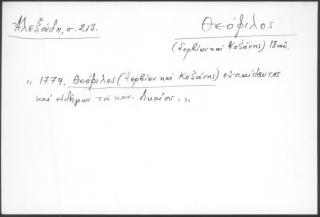 Αλεξούδη, σ. 213.
Θεόφιλος
(Σερβίων και Κοζάνης) 18 αι.
„ 1779. Θεόφιλος (Σερβίων και Κοζάνης) ευπαίδευτος
και ειδήμων του καν. δικαίου. „